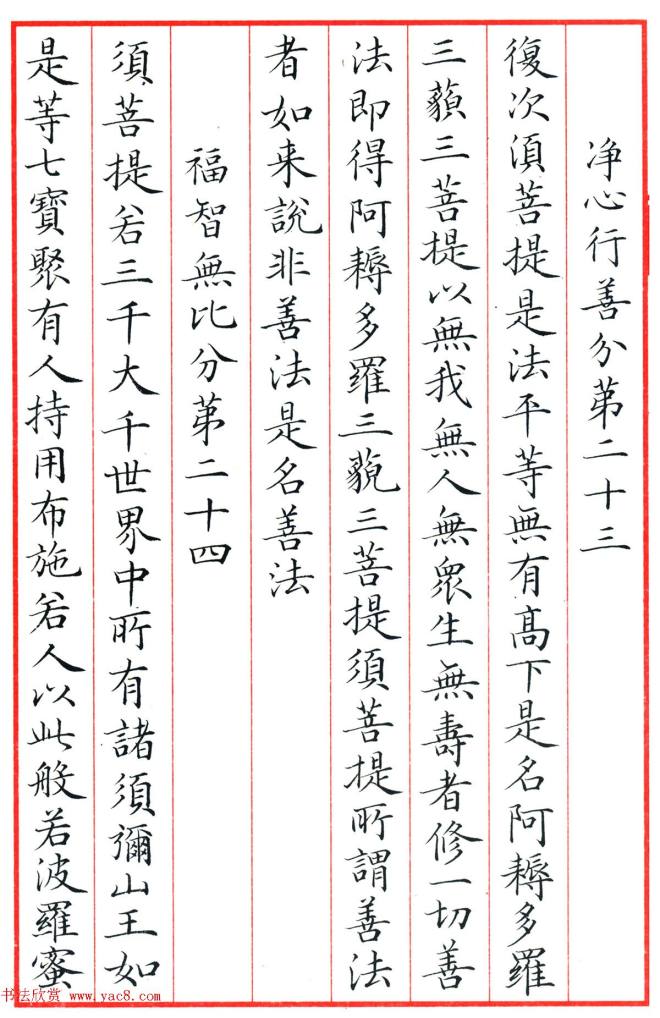 净心行善分第二十三
復次須菩提是法平等無有高下是名阿耨多羅
三藐三菩提以無我無人無衆生無壽者修一切善
法即得阿耨多羅三藐三菩提須菩提所謂善法
者如来說非善法是名善法
福智無比分第二十四
須菩提若三千大千世界中所有諸須彌山王如
是等七寶聚有人持用布施若人以此般若波羅蜜
书法欣赏 www.yac8.com